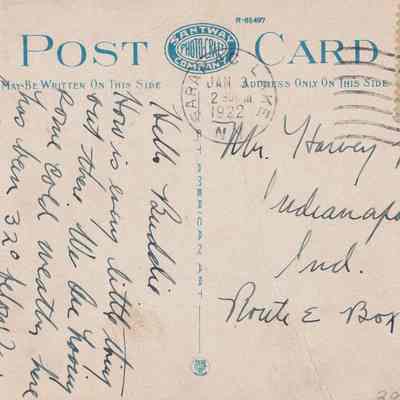 R-65497
POST CARD
SANTWAY
PHOTO-CRAFT
COMPANY
MAY BE WRITTEN ON THIS SIDE
ADDRESS ONLY ON THIS SIDE
SARA LAKE
JAN 3
2 30 PM
1922
N
ST AMERICAN ART
Hello Buddie
How is every little thing
out there. We are having
some cold weather here
has been 32° below
Mr. Harvey
Indianapo
Ind.
Route E Box